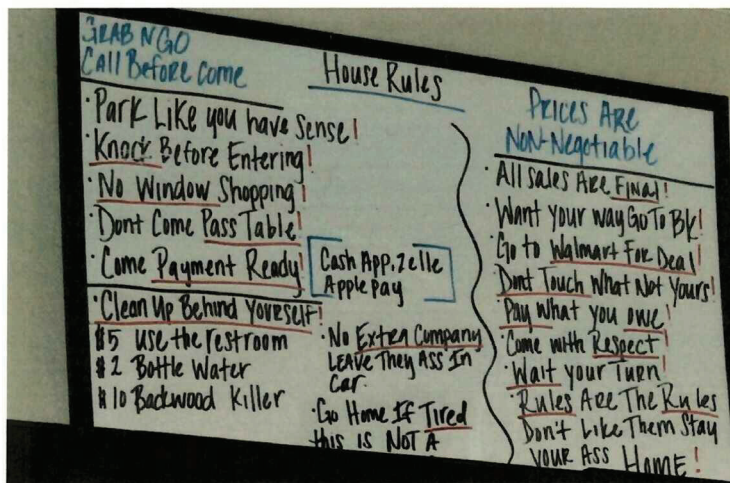 GRAB N GO
Call Before Come
House Rules
· Park Like you have Sense!
· Knock Before Entering!
· No Window Shopping!
· Dont Come Pass Table!
· Come Payment Ready!
Cash App, Zelle
Apple pay
· Clean Up Behind Yourself!
$5 use the restroom
$2 Bottle Water
$10 Backwood Killer
· No Extra Company
LEAVE They Ass In
Car.
· Go Home If Tired
this is NOT A
Prices Are
Non-Negotiable
· All sales Are Final!
· Want your way Go To BK!
· Go to Walmart For Deal!
· Dont Touch What Not Yours!
· Pay What you owe!
· Come with Respect!
· Wait your Turn!
· Rules Are The Rules
Don't Like Them Stay
your Ass Home!